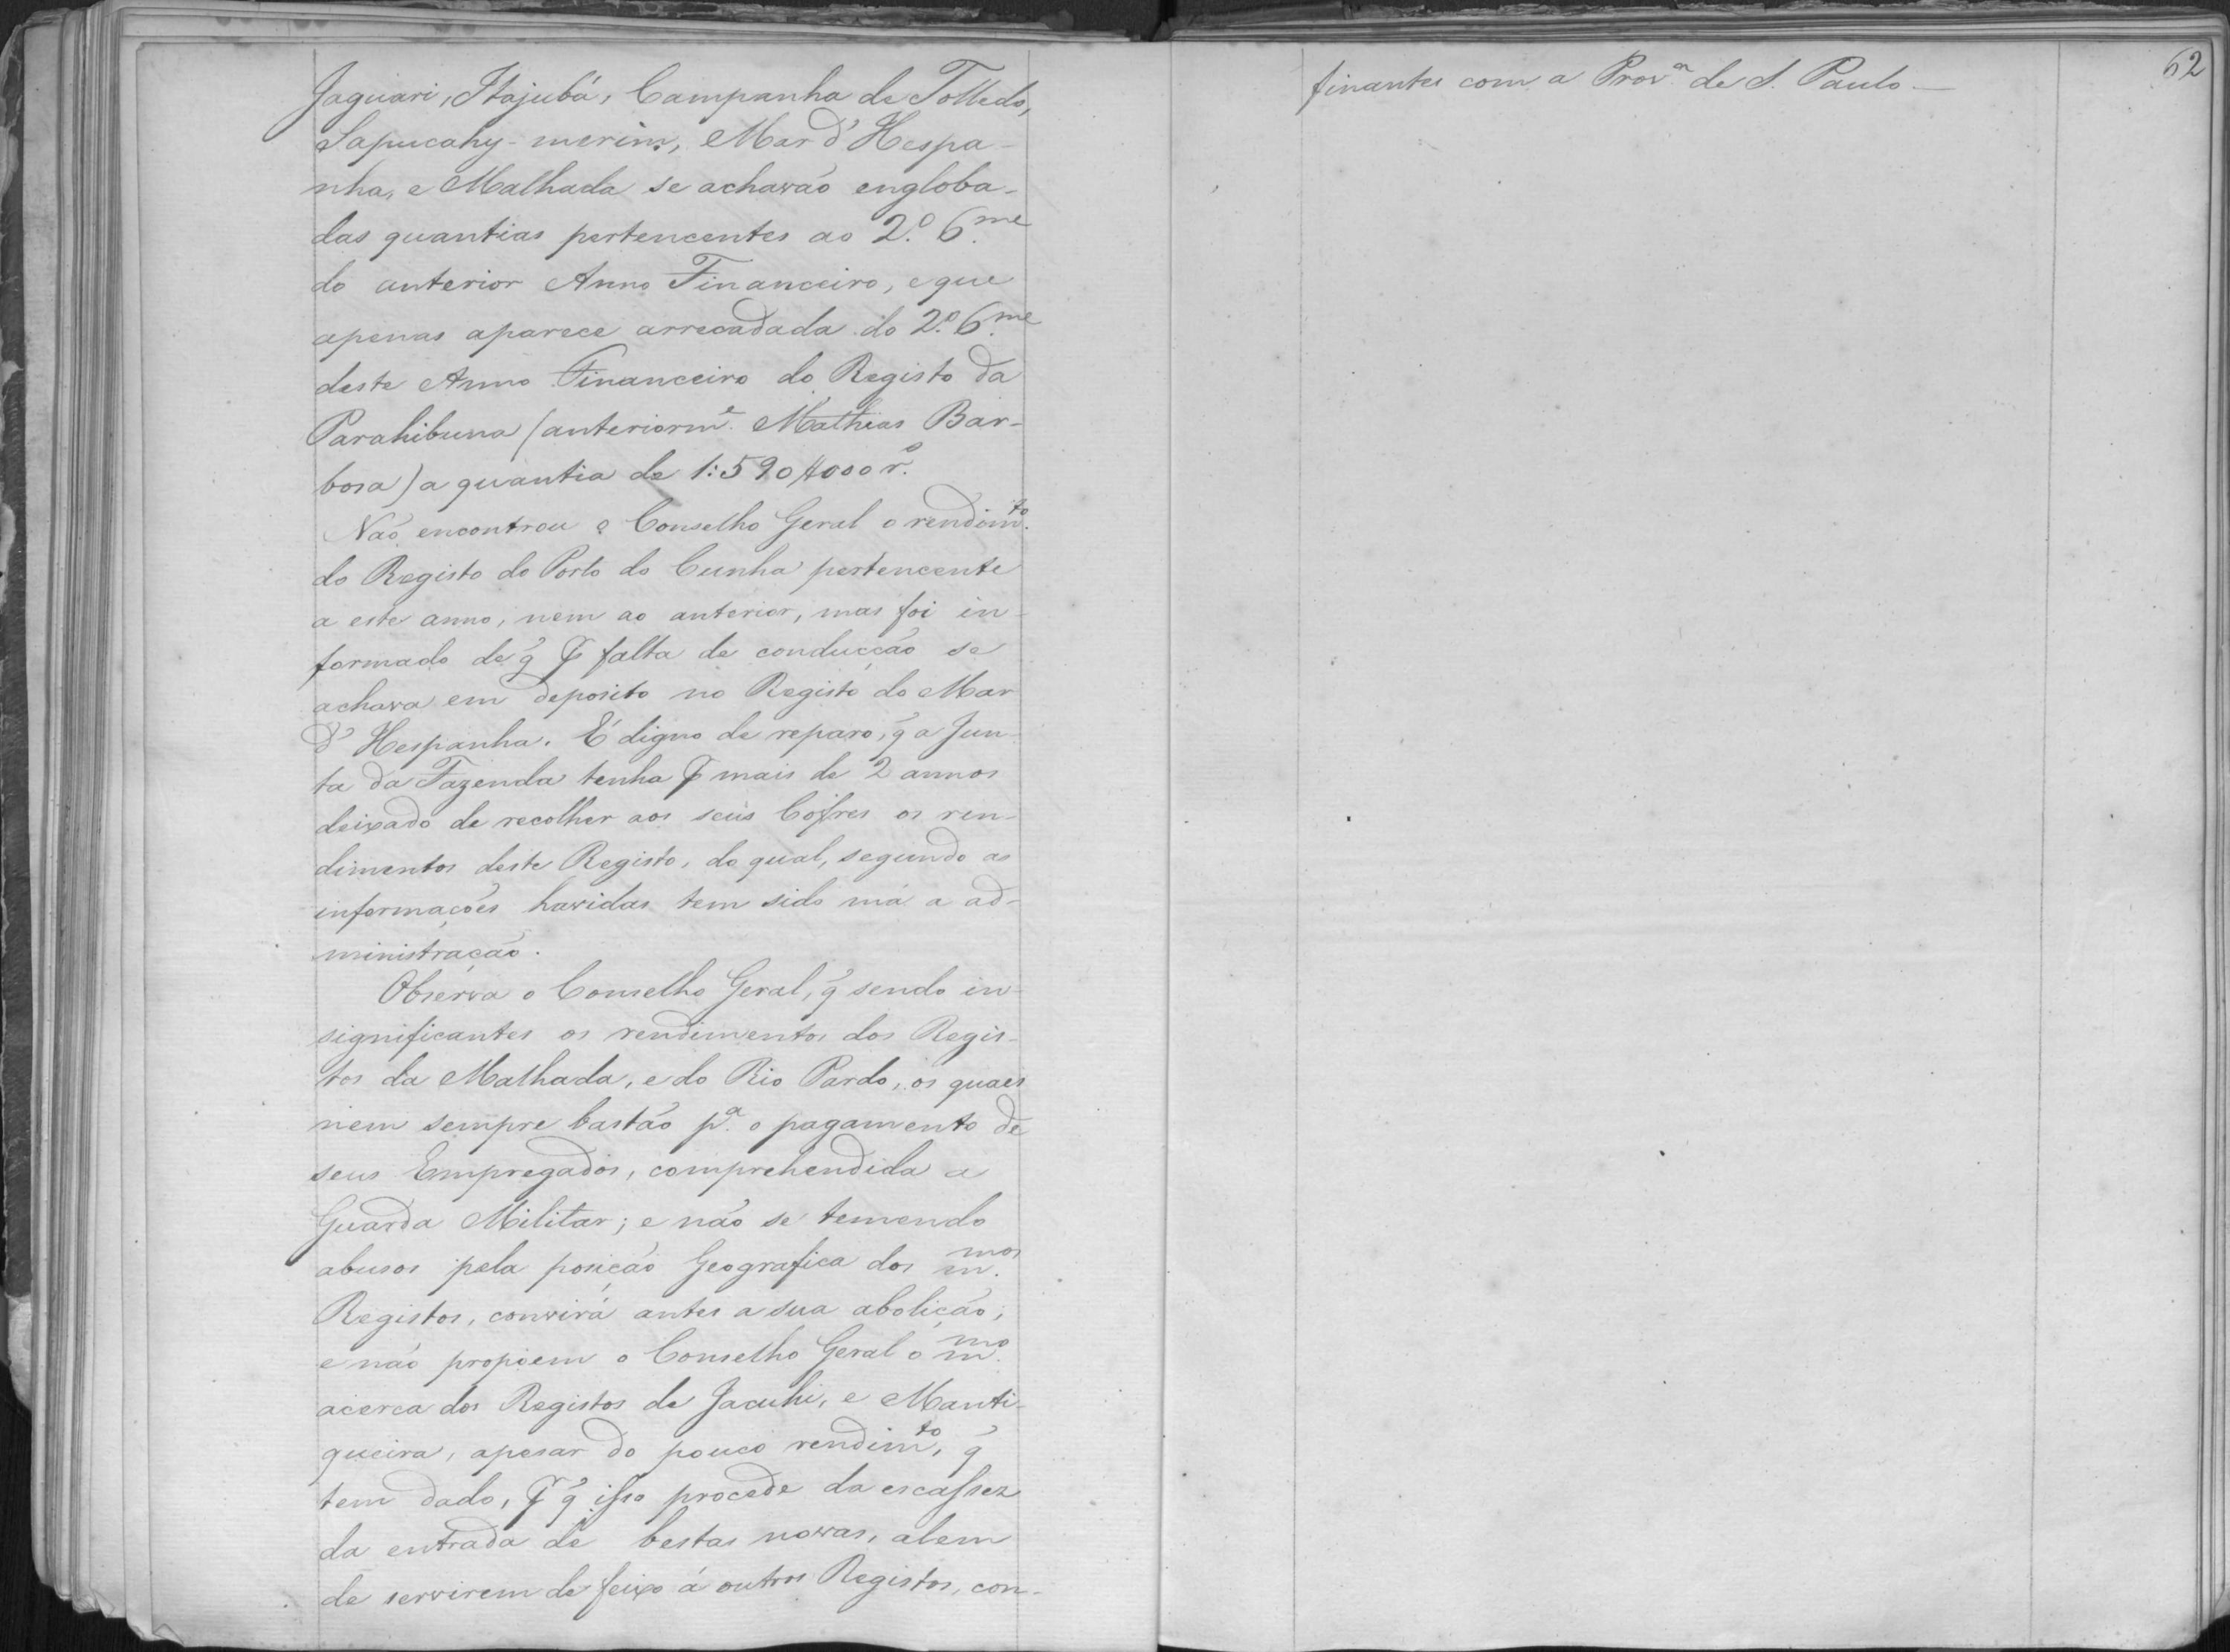 Jaguari, Itajubá, Campanha de Tolledo,
Sapucahy-merim, Mar d'Hespa-
nha, e Malhada se achavão engloba-
das quantias pertencentes ao 2.º 6.me
do anterior Anno Financeiro, e que
apenas aparece arrecadada do 2.º 6.me
deste Anno Financeiro do Registo da
Parahibuna (anteriorm.e Mathias Bar-
bosa) a quantia de 1:590$000 r.s
Não encontrou o Conselho Geral o rendim.to
do Registo do Porto do Cunha pertencente
a este anno, nem ao anterior, mas foi in-
formado de q̃ ꝑ falta de conducção se
achava em deposito no Registo do Mar
d'Hespanha. É digno de reparo, q̃ a Jun-
ta da Fazenda tenha ꝑ mais de 2 annos
deixado de recolher aos seus Cofres os ren-
dimentos deste Registo, do qual, segundo as
informações havidas tem sido má a ad-
ministração.
Observa o Conselho Geral, q̃ sendo in-
significantes os rendimentos dos Regis-
tos da Malhada, e do Rio Pardo, os quaes
nem sempre bastão p.a o pagamento de
seus Empregados, comprehendida a
Guarda Militar; e não se temendo
abusos pela posição Geografica dos m.mos
Registos, convirá antes a sua abolição;
e não propoem o Conselho Geral o m.mo
acerca dos Registos de Jacuhi, e Manti-
queira, apesar do pouco rendim.to, q̃
tem dado, ꝑ q̃ isso procede da escassez
da entrada de bestas novas, alem
de servirem de feixo á outros Registos, con-
62
finantes com a Prov.a de S. Paulo —